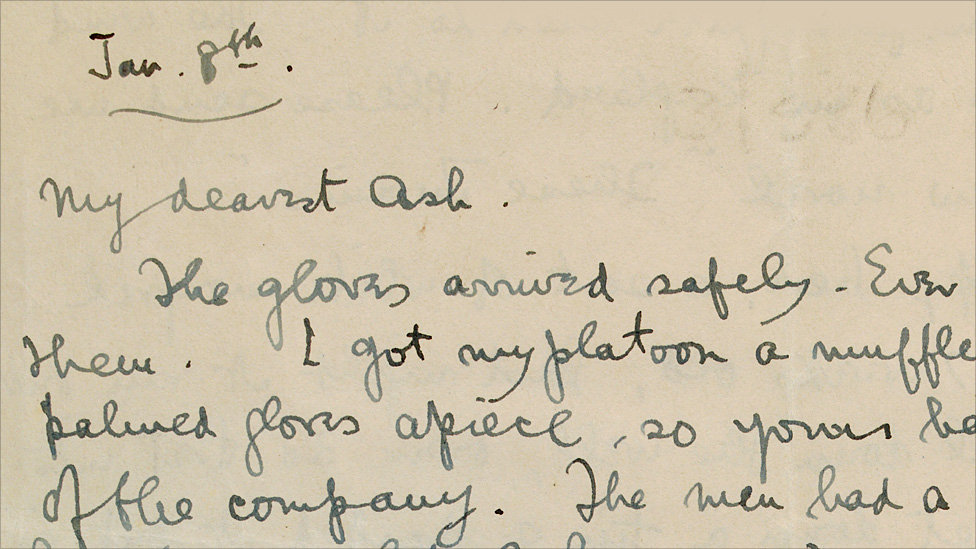 Jan. 8th.
My dearest Ash.
The gloves arrived safely - Ever
them. I got my platoon a muffle
palmed gloves apiece, so yours be
of the company. The men had a